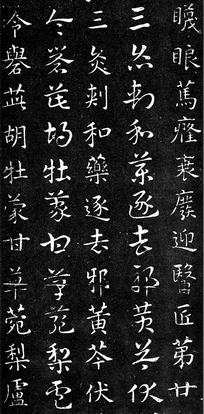 䁾眼篤癃衰廢迎醫匠第廿
三灸刺和藥逐去邪黃芩伏
三灸刺和藥逐去邪黃芩伏
令礜茈胡牡蒙甘草菀梨盧
令礜茈胡牡蒙甘草菀梨盧